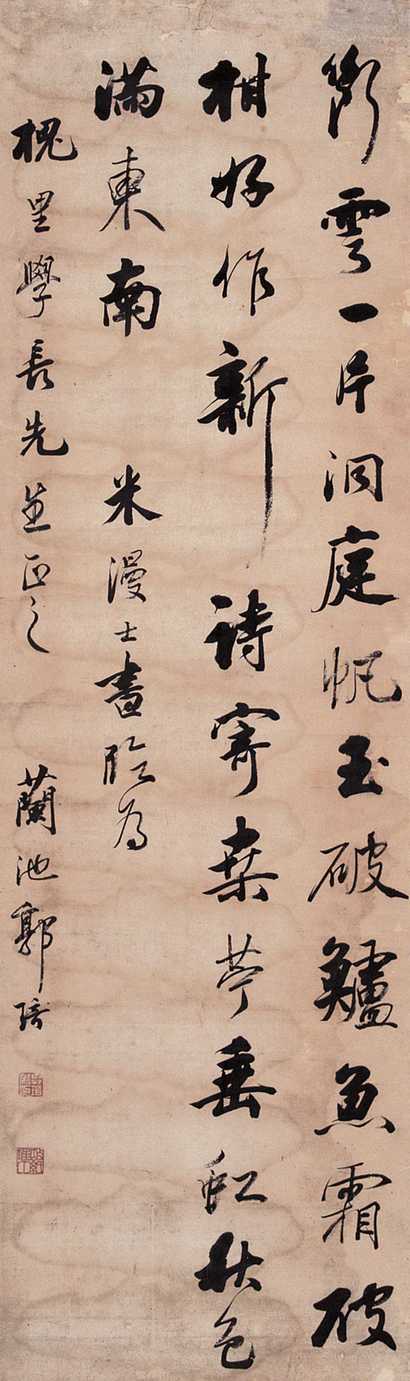 斷雲一片洞庭帆玉破鱸魚霜破
柑好作新詩寄桒苧垂虹秋色
滿東南 米漫士書臨為
槐里學長先生正之 蘭池郭